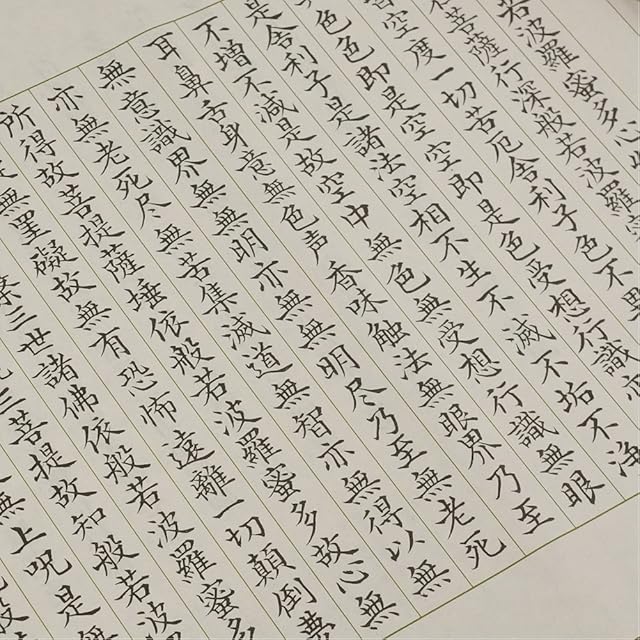 若波羅蜜多心
菩薩行深般若波羅
空度一切苦厄舍利子色不異
色色即是空空即是色受想行識亦
是舍利子是諸法空相不生不滅不垢不淨
不增不減是故空中無色無受想行識無眼
耳鼻舌身意無色声香味触法無眼界乃至
無意識界無無明亦無無明尽乃至無老死
亦無老死尽無苦集滅道無智亦無得以無
所得故菩提薩埵依般若波羅蜜多故心無
無罣礙故無有恐怖遠離一切顛倒夢
槃三世諸佛依般若波羅蜜多
三菩提故知般若波
無上呪是無